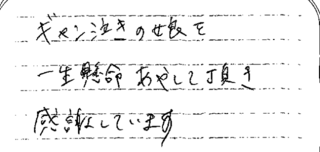 ギャン泣きの娘を
一生懸命あやして頂き
感謝しています